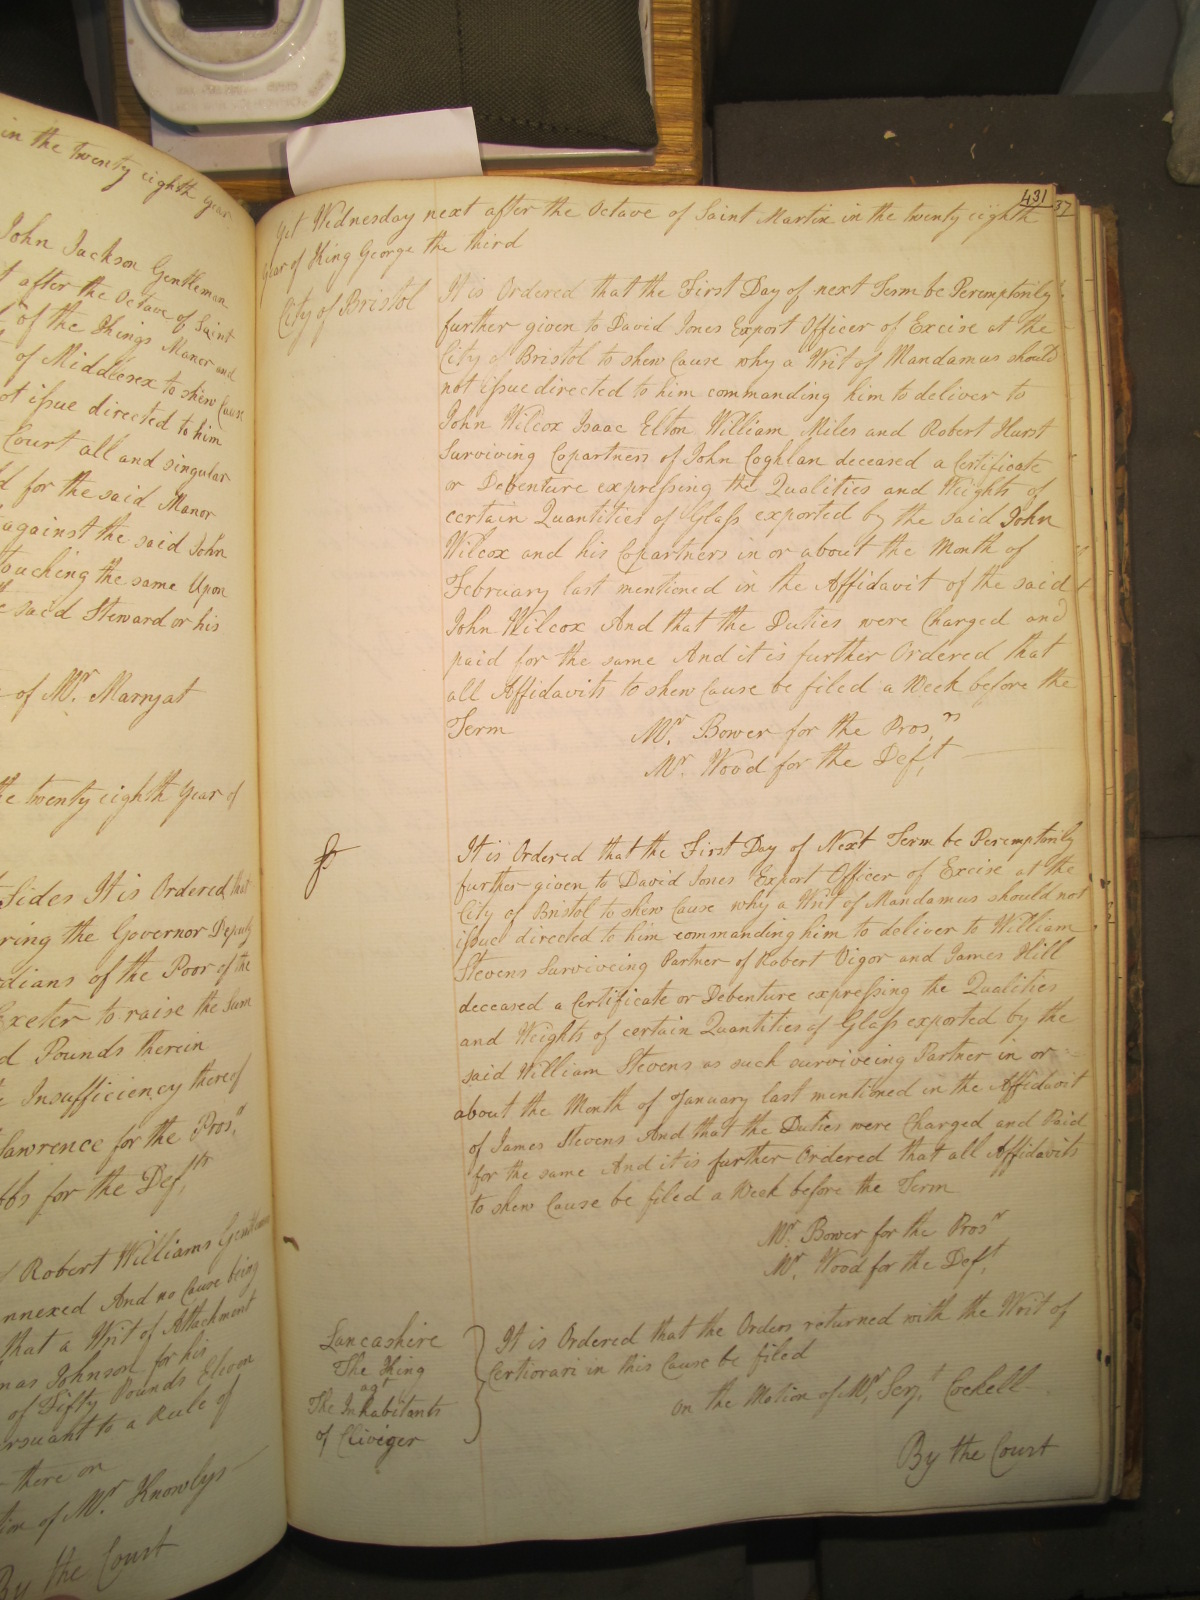 in the twenty eighth year
John Jackson Gentleman
after the Octave of Saint
of the Kings Manor and
of Middlesex to shew Cause
not issue directed to him
Court all and singular
for the said Manor
against the said John
touching the same Upon
said Steward or his
of Mr. Marryat
the twenty eighth Year of
Sides It is Ordered that
the Governor Deputy
of the Poor of the
Exeter to raise the Sum
Pounds therein
Insufficiency thereof
Lawrence for the Pros.n
for the Def.ts
Robert Williams Gentleman
annexed And no Cause being
that a Writ of Attachment
Johnson for his
of Fifty Pounds Eleven
pursuant to a Rule of
there on
of Mr. Knowlys
By the Court
431
37
Yet Wednesday next after the Octave of Saint Martin in the twenty eighth
Year of King George the third
City of Bristol
It is Ordered that the First Day of next Term be Peremptorily
further given to David Jones Export Officer of Excise at the
City of Bristol to shew Cause why a Writ of Mandamus should
not issue directed to him commanding him to deliver to
John Wilcox Isaac Elton William Miles and Robert Hurst
Surviving Copartners of John Coghlan deceased a Certificate
or Debenture expressing the Qualities and Weights of
certain Quantities of Glass exported by the said John
Wilcox and his Copartners in or about the Month of
February last mentioned in the Affidavit of the said
John Wilcox And that the Duties were Charged and
paid for the same And it is further Ordered that
all Affidavits to shew Cause be filed a Week before the
Term
Mr. Bower for the Pros.n
Mr. Wood for the Def.t
It is Ordered that the First Day of Next Term be Peremptorily
further given to David Jones Export Officer of Excise at the
City of Bristol to shew Cause why a Writ of Mandamus should not
issue directed to him commanding him to deliver to William
Stevens Surviveing Partner of Robert Vigor and James Hill
deceased a Certificate or Debenture expressing the Qualities
and Weights of certain Quantities of Glass exported by the
said William Stevens as such surviveing Partner in or
about the Month of January last mentioned in the Affidavit
of James Stevens And that the Duties were Charged and Paid
for the same And it is further Ordered that all Affidavits
to shew Cause be filed a Week before the Term
Mr. Bower for the Prosr
Mr. Wood for the Def.t
Lancashire
The King
agt
The Inhabitants
of Cliviger
It is Ordered that the Orders returned with the Writ of
Certiorari in this Cause be filed
on the Motion of Mr. Serj.t Cockell
By the Court